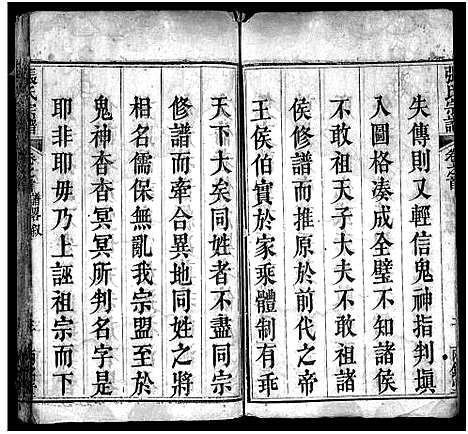 失傳則又輕信鬼神指判塡
入圖格凑成全璧不知諸侯
不敢祖天子大夫不敢祖諸
侯修譜而推原於前代之帝
王侯伯實於家乘體制有乖
天下大矣同姓者不盡同宗
修譜而牽合異地同姓之將
相名儒保無亂我宗盟至於
鬼神杳杳冥冥所判名字是
耶非耶毋乃上誣祖宗而下
張氏宗譜
張氏宗譜
卷之首
卷之首
譜畧叙